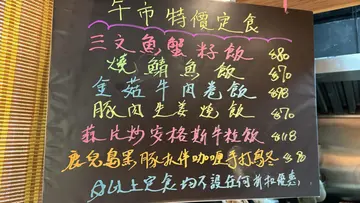 午市特價定食
三文魚蟹籽飯 $80
燒鯖魚飯 $70
金菇牛肉卷飯 $98
豚肉生姜燒飯 $70
蒜片炒安格斯牛粒飯 $118
鹿兒島黑豚扒伴咖喱手打烏冬 $
以上定食均不設任何折扣優惠